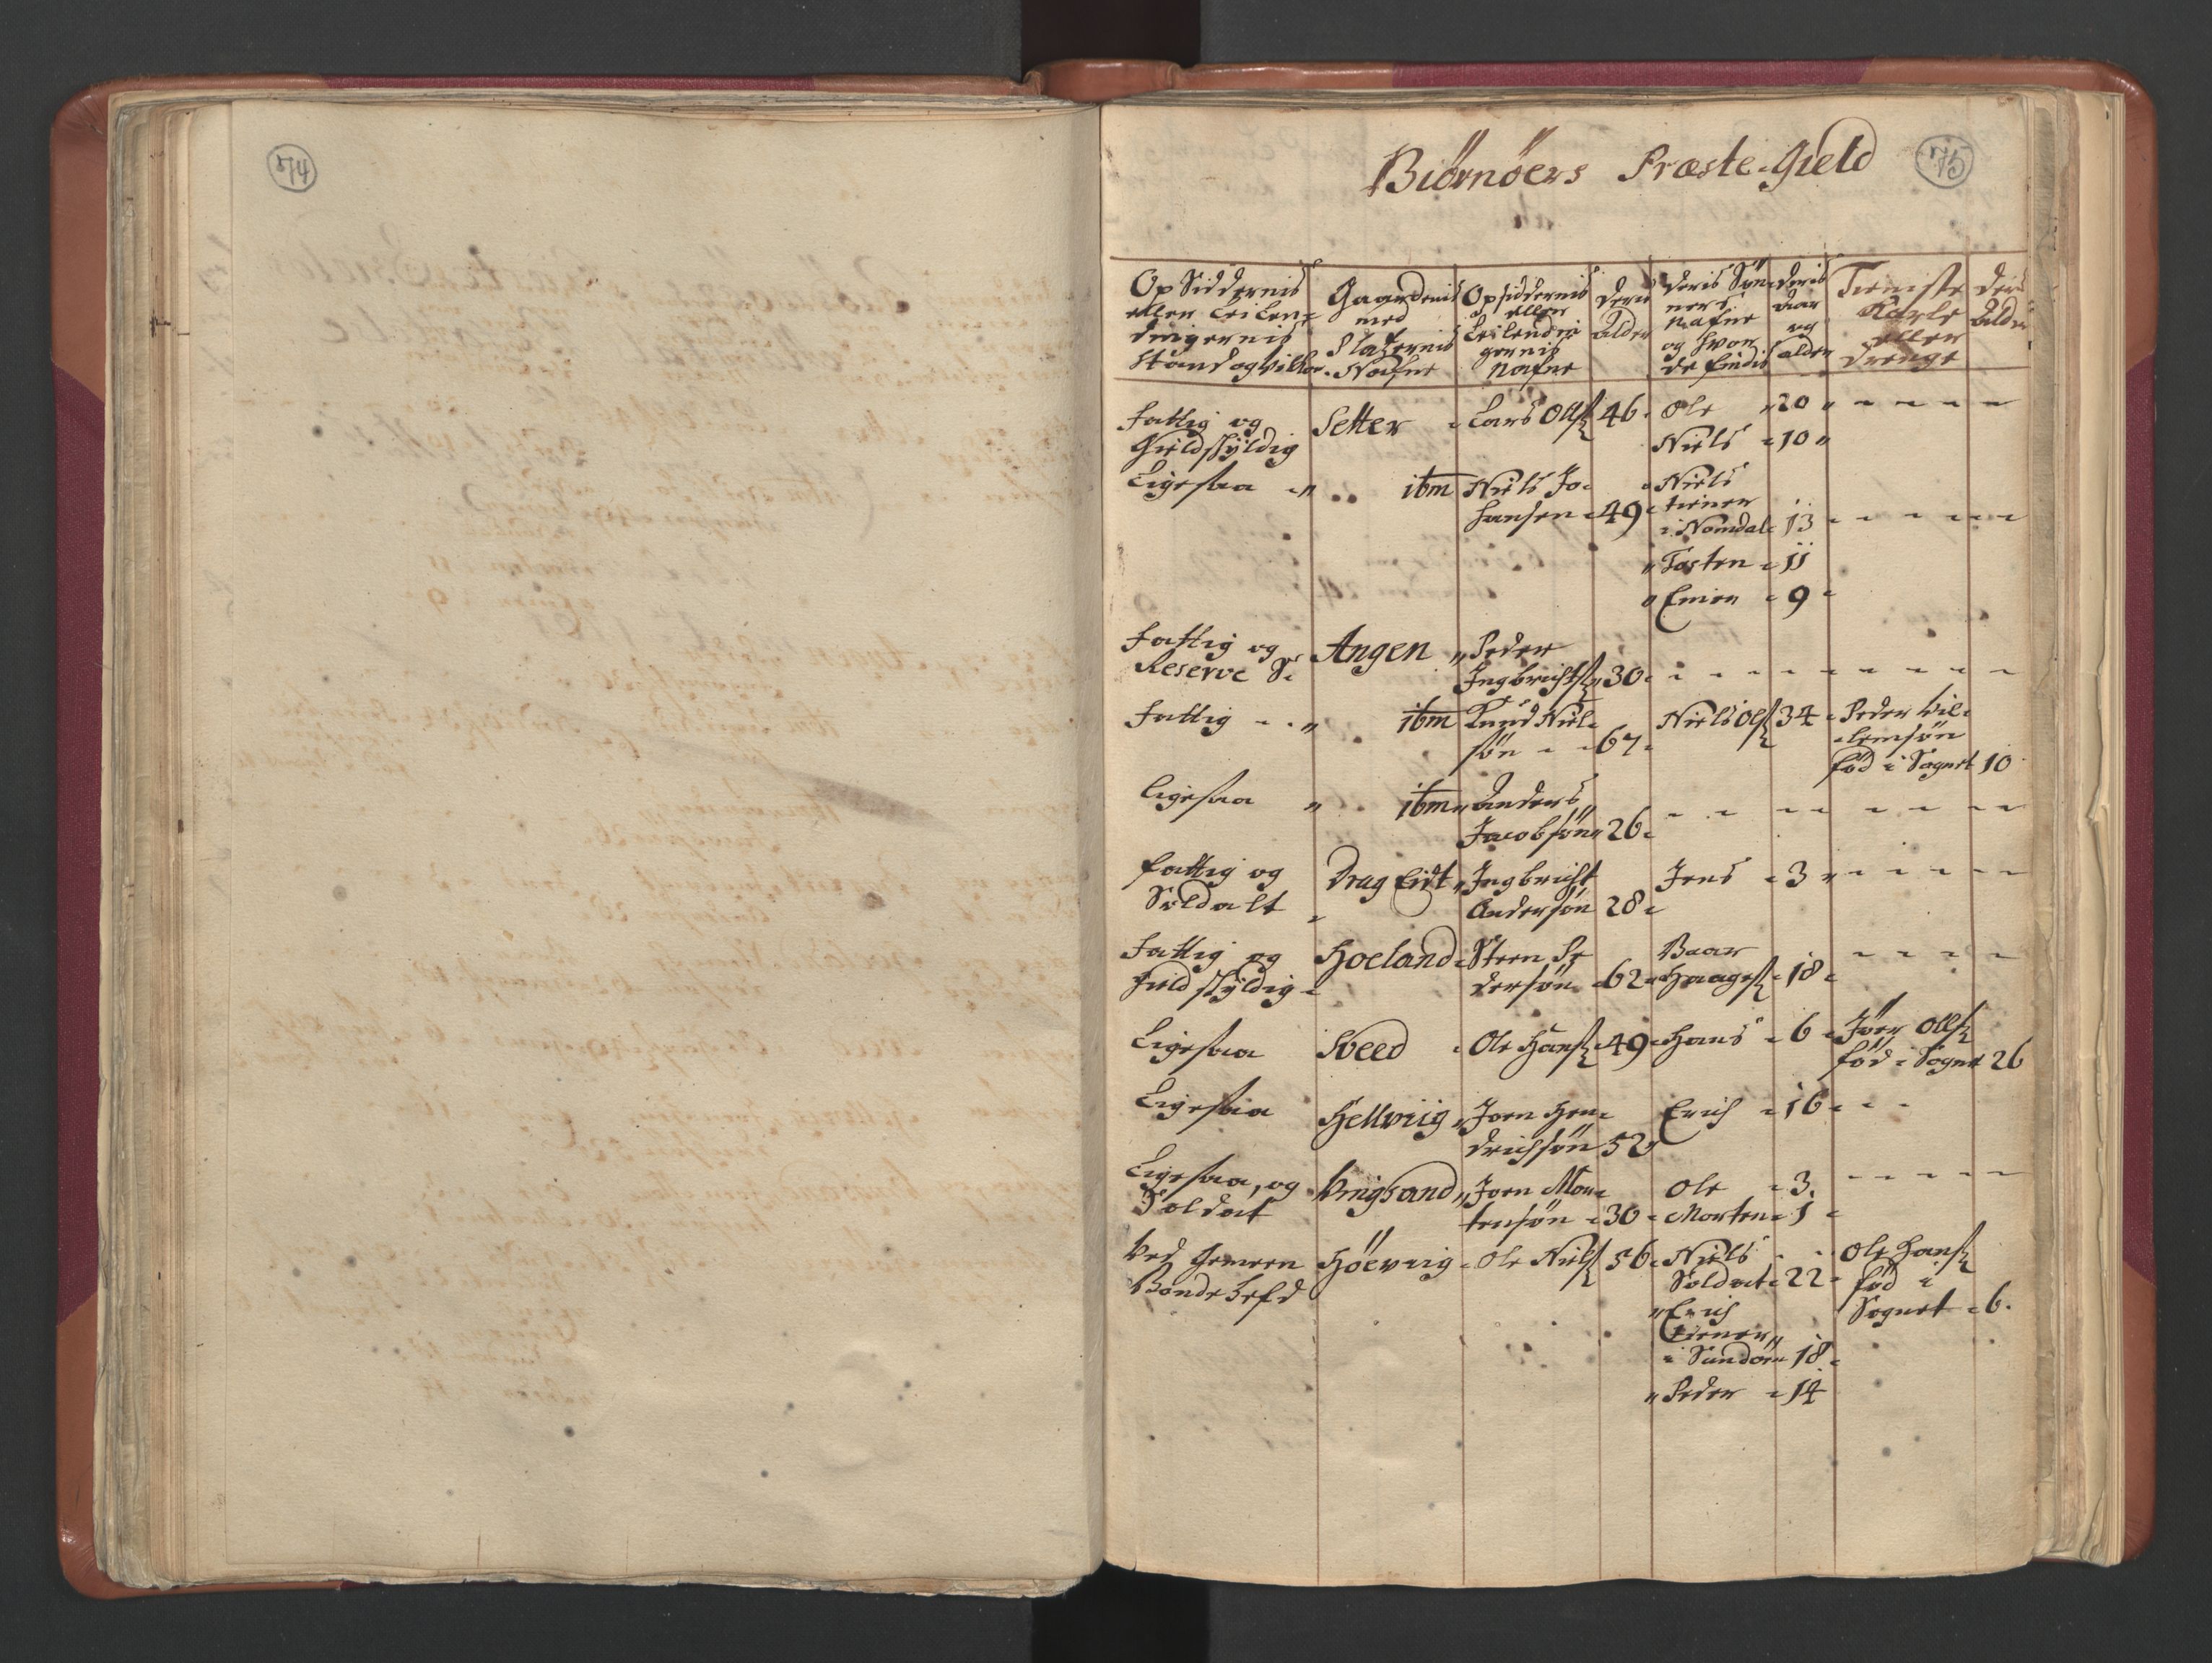 74
75
Biørnøers Præste-Gield
Op Siddernis eller Leilendingernis Stand og Vilkor
Gaardenis med Pladzernis Nafne
Opsiddernis eller Leilendingernis Nafne
Deris Alder
Deris Sønners Nafne og hvor de findis
Deris Aar og alder
Tieniste Karle eller Drenge
Deris Alder
Fattig og Gieldskyldig Setter Lars Olls: 46 Ole 20
Niels 10
Ligesaa itm Niels Johansen 49 Niels tiener i Nomdal 13
Tosten 11
Einer 9
Fattig og Reserve S: Angen Peder Ingbrichts: 30
Fattig itm Knud Nielsøn 67 Niels Ols: 34 Peder Vilemsøn fød i Sognet 10
Ligesaa itm Anders Jacobsøn 26
Fattig og Soldatt Drag Eidt Ingbricht Andersøn 28 Jens 3
Fattig og Gieldskyldig Hoeland Steen Pedersøn 62 Baar Haages: 18
Ligesaa Sveed Ole Hans: 49 Hans 6 Iver Olls: fød i Sognet 26
Ligesaa Hellviig Joen Hendrichsøn 52 Erich 16
Ligesaa, og Soldat Vingsand Joen Mortensøn 30 Ole 3
Morten 1
Ved Gemeen Bonde hefd Høevig Ole Niels: 56 Niels Soldat 22 Ole Hans: fød i Sognet 6
Erich tiener i Sundøen 18
Peder 14